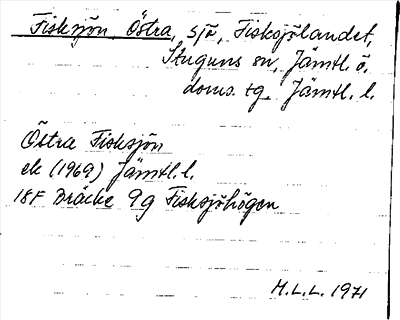 Fisksjön, Östra, sjö, Fisksjölandet,
Stuguns sn, Jämtl. ö.
doms. tg Jämtl. l.
Östra Fisksjön
ek (1969) Jämtl. l.
18F Bräcke 9g Fisksjöhögen
M.L.L. 1971